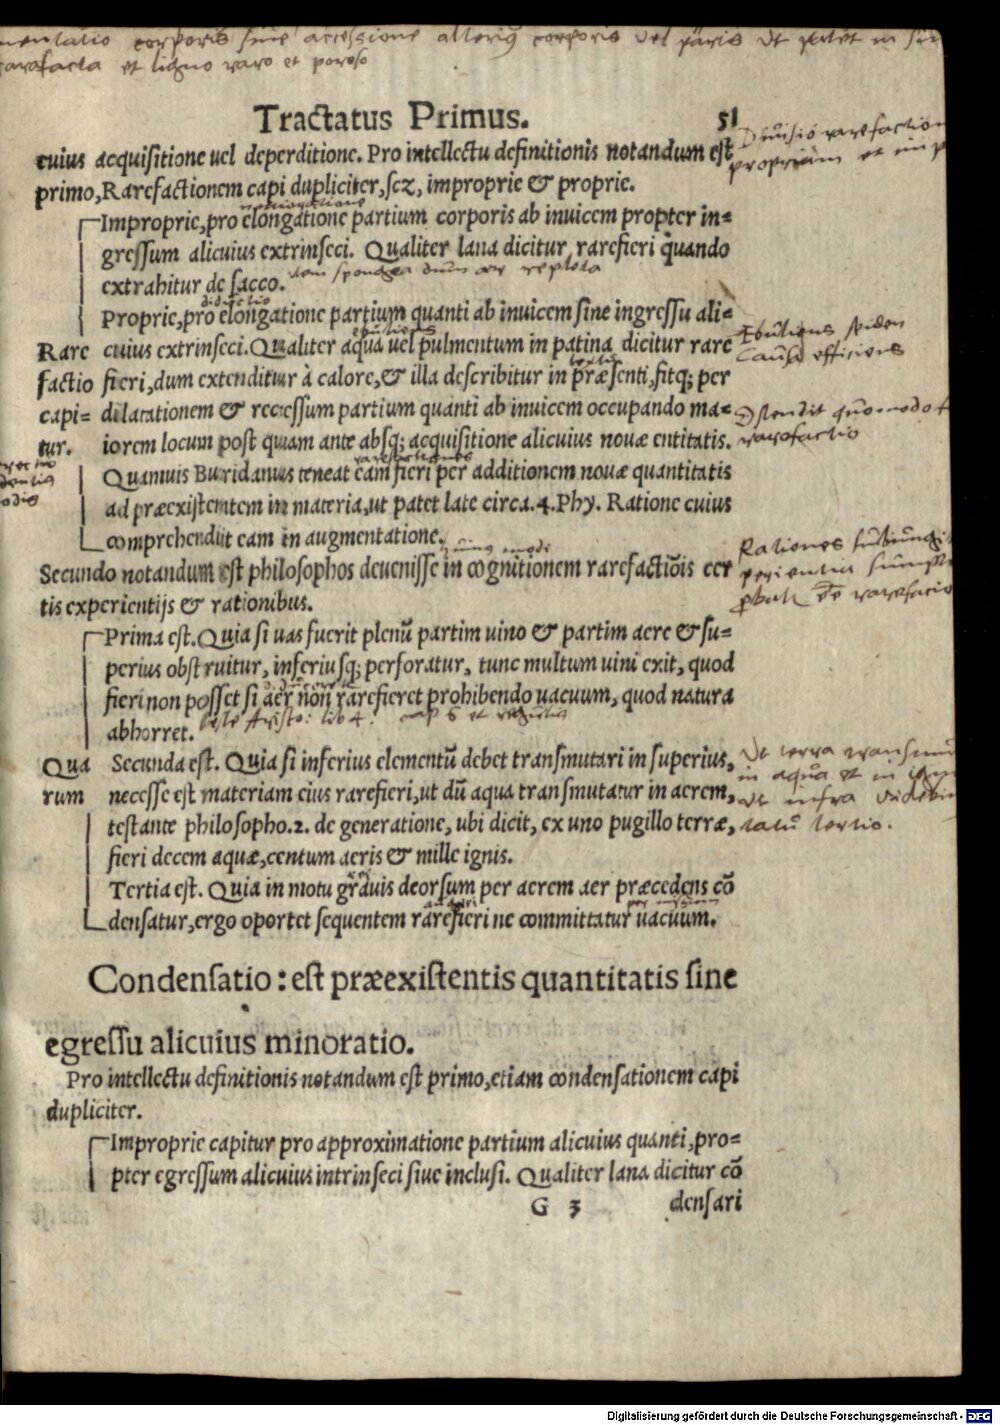 corporis sine accessione alterius corporis vel
et ligno raro et poroso
Tractatus Primus. 51
cuius acquisitione uel deperditione. Pro intellectu definitionis notandum est
primo, Rarefactionem capi dupliciter, scz, improprie & proprie.
Improprie, pro elongatione partium corporis ab inuicem propter in=
gressum alicuius extrinseci. Qualiter lana dicitur rarefieri quando
extrahitur de sacco.
Proprie, pro elongatione partium quanti ab inuicem sine ingressu ali=
Rare cuius extrinseci. Qualiter aqua uel pulmentum in patina dicitur rare
factio fieri, dum extenditur à calore, & illa describitur in præsenti, fitq; per
capi= dilatationem & recessum partium quanti ab inuicem occupando ma=
tur. iorem locum post quam ante absq; acquisitione alicuius nouæ entitatis.
Quamuis Buridanus teneat eam fieri per additionem nouæ quantitatis
ad præexistentem in materia, ut patet late circa .4. Phy. Ratione cuius
comprehendit eam in augmentatione.
Secundo notandum est philosophos deuenisse in cognitionem rarefactiõis cer
tis experientijs & rationibus.
Prima est. Quia si uas fuerit plenũ partim uino & partim aere & su=
perius obstruitur, inferiusq; perforatur, tunc multum uini exit, quod
fieri non posset si aer non rarefieret prohibendo uacuum, quod natura
abhorret.
Qua Secunda est. Quia si inferius elementũ debet transmutari in superius,
rum necesse est materiam eius rarefieri, ut dũ aqua transmutatur in aerem,
testante philosopho .2. de generatione, ubi dicit, ex uno pugillo terræ,
fieri decem aquæ, centum aeris & mille ignis.
Tertia est. Quia in motu grauis deorsum per aerem aer præcedens cõ
densatur, ergo oportet sequentem rarefieri ne committatur uacuum.
Condensatio: est præexistentis quantitatis sine
egressu alicuius minoratio.
Pro intellectu definitionis notandum est primo, etiam condensationem capi
dupliciter.
Improprie capitur pro approximatione partium alicuius quanti, pro=
pter egressum alicuius intrinseci siue inclusi. Qualiter lana dicitur cõ
G 3 densari
Causa efficiens
Ostendit quomodo
rarefactio
Rationes
Ut terra
in aqua et in
ut infra
tertio.
Digitalisierung gefördert durch die Deutsche Forschungsgemeinschaft - DFG